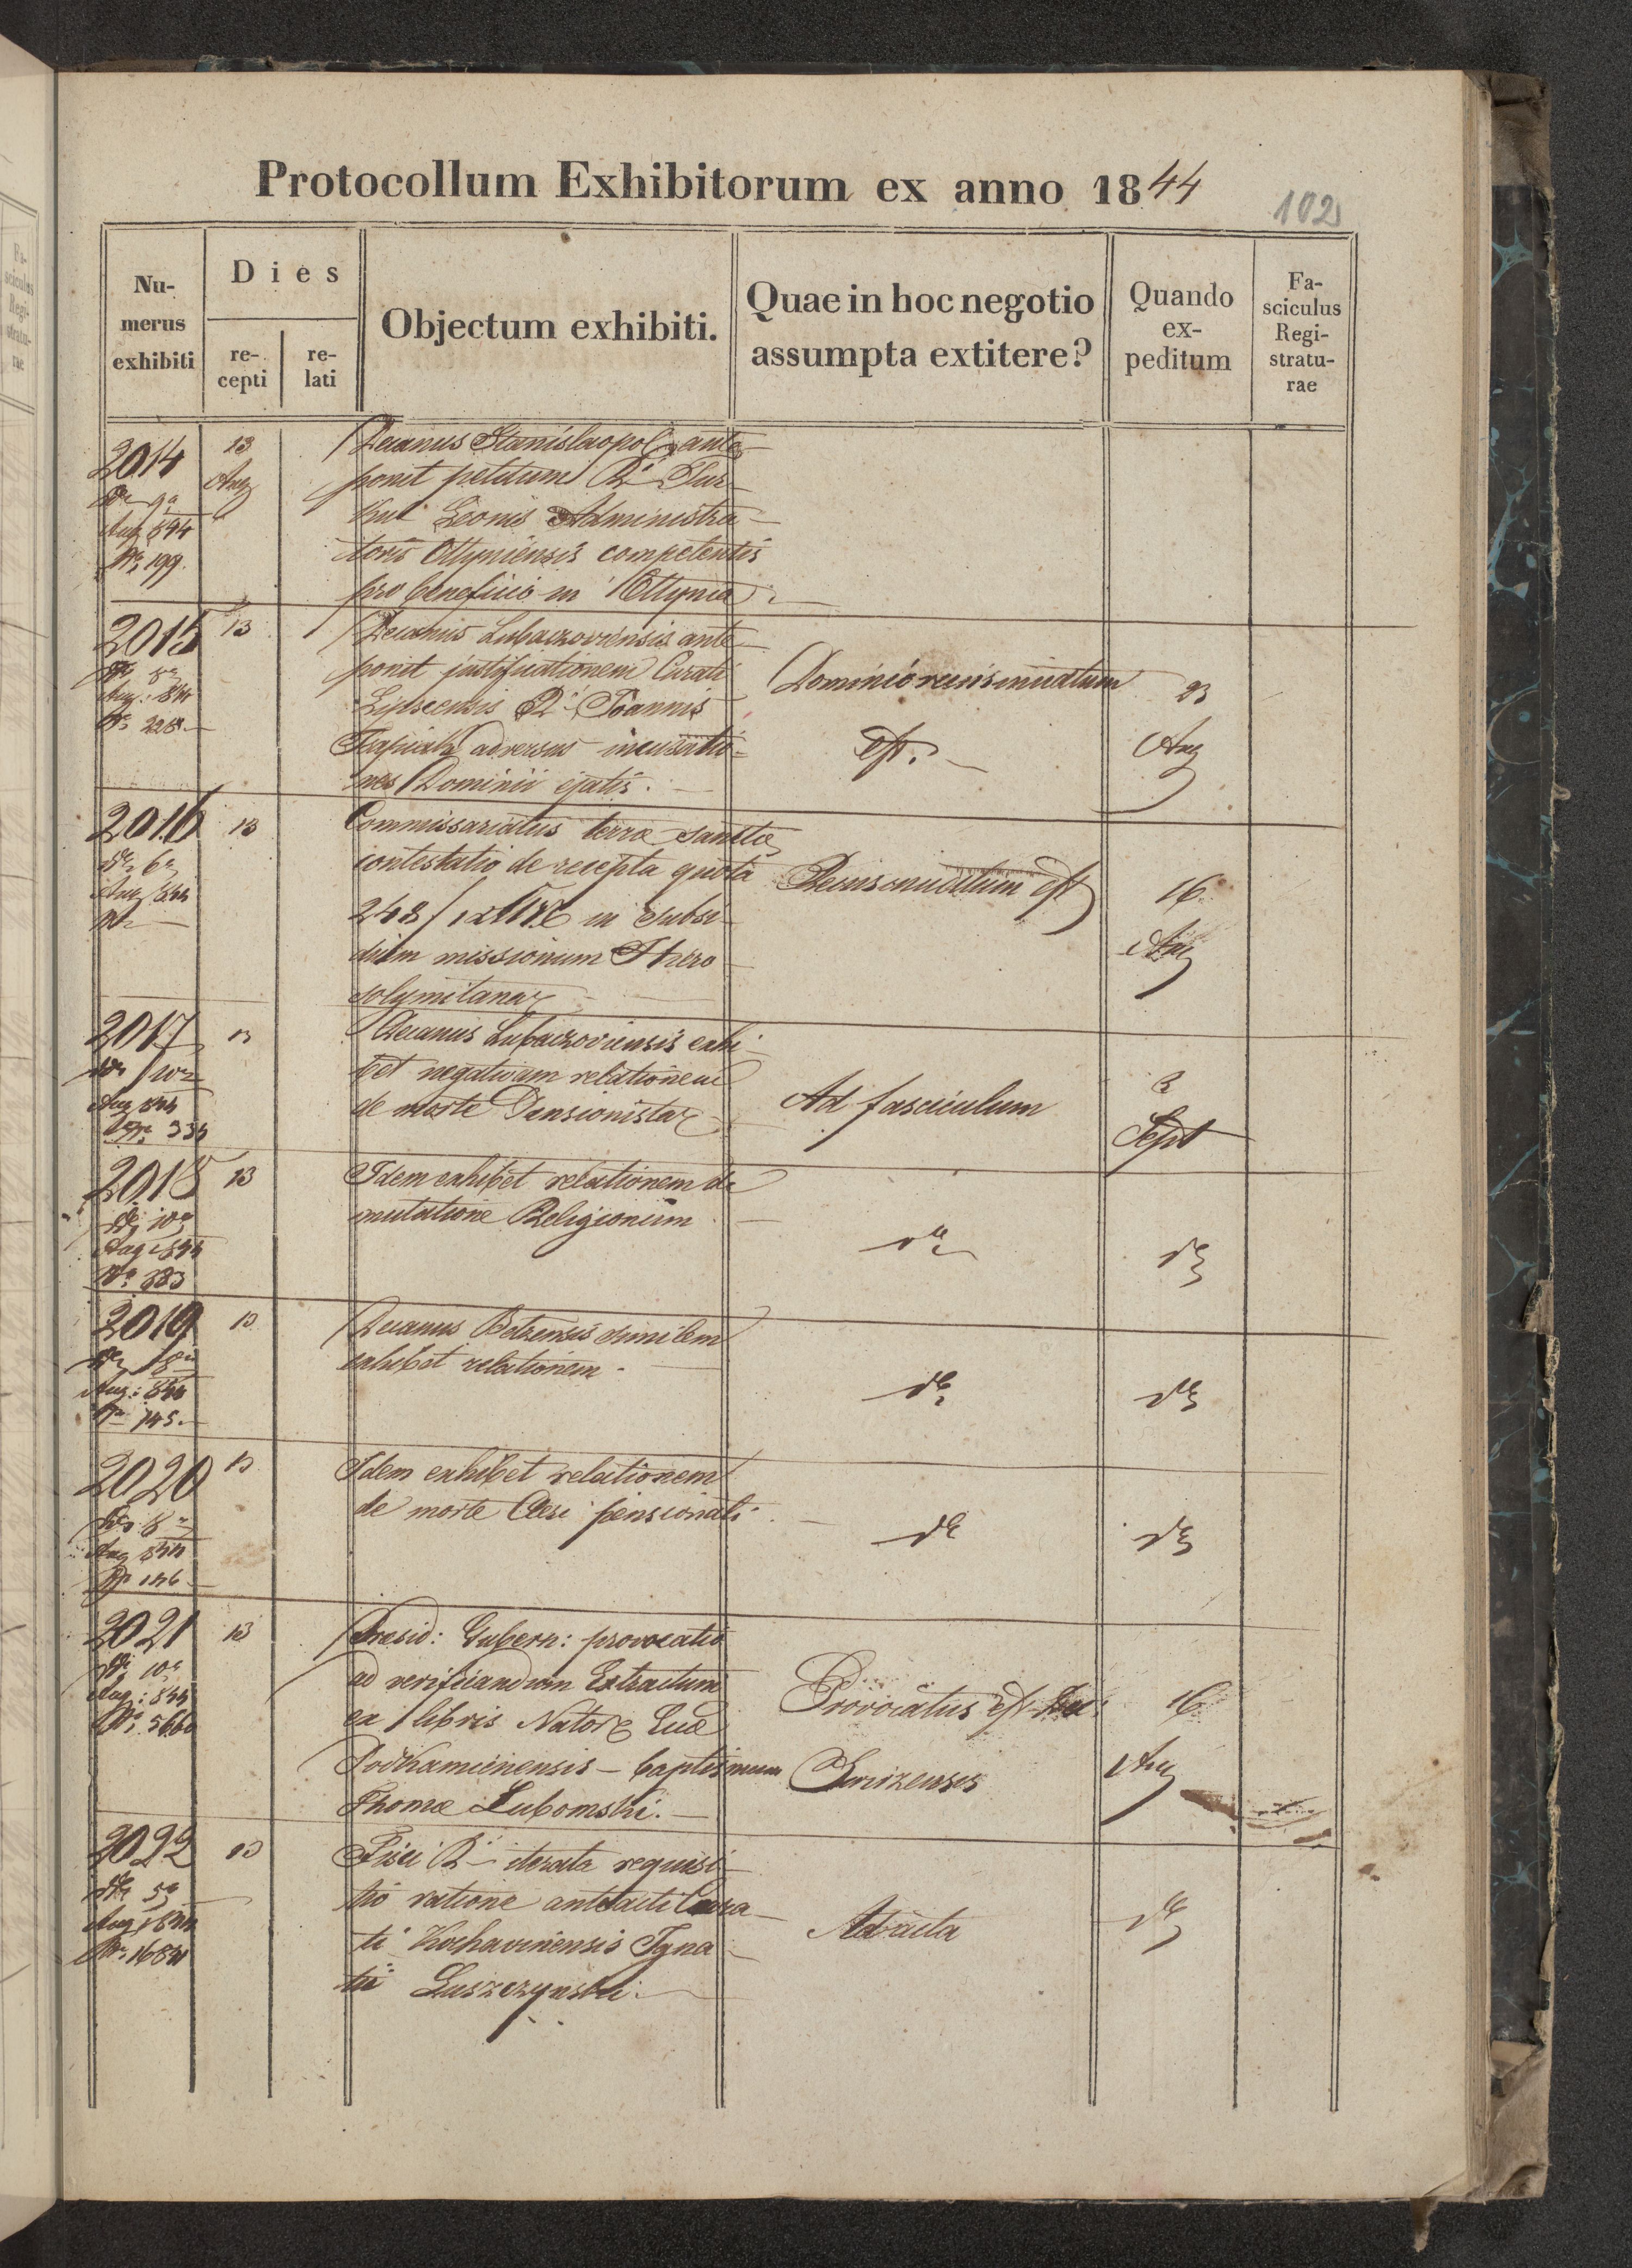 Protocollum Exhibitorum ex anno 1844
102
Nu-
merus
exhibiti
Dies
re-
cepti
re-
lati
Objectum exhibiti.
Quae in hoc negotio
assumpta extitere?
Quando
ex-
peditum
Fa-
sciculus
Regi-
stratu-
rae
2014
13
Aug
Aug 844
Nr 199.
Decanus Stanislaopol ante
ponit petitum
Leonis Administra-
toris Ottyniensis competentis
pro beneficio in Ottynia
2015
13
Aug: 844
Nr 228.
Decanus Lubaczoviensis ante
ponit justificationem Curati
Joannis
adversus incusatio-
nes Dominii ejatis.
Dominio reinsinuatum
est.
23
Aug
2016
13
de 6a
Aug 844
Nr —
Commissariatus terrae Sanctae
contestatio de recepta quota
248/12 in subsi-
dium missionum Hiero
solymitanar
Reinsinuatum est
16
Aug
2017
13
de 10a
Aug 844
Nr 334
Decanus Lubaczoviensis exhi-
bet negativam relationem
de morte Pensionistar
Ad fasciculum
2
Sept
2018
13
de 10a
Aug 844
Nr 333
Idem exhibet relationem de
mutatione Religionum
dto
dto
2019
13
de 8a
Aug: 844
Nr 145.
Decanus Belzensis similem
exhibet relationem.
dto
dto
2020
13
de 8a
Aug 844
Nr 146
Idem exhibet relationem
de morte Cleri pensionati.
dto
dto
2021
13
de 10a
Aug: 844
Nr 5660
Presid: Gubern: provocatio
ad verificandum Extractum
ex libris Nator Eccl
Podkamienensis — baptismum
Thomae Lubomski. —
Provocatus est Dec:
Swirzensis
16
Aug
2022
13
de 5a
Aug 1844
Nr 1684
Fisci R iterata requisi-
tio ratione antelacti Cura-
ti Kochavinensis Igna-
tii Luszczynski.
Ad acta
dto